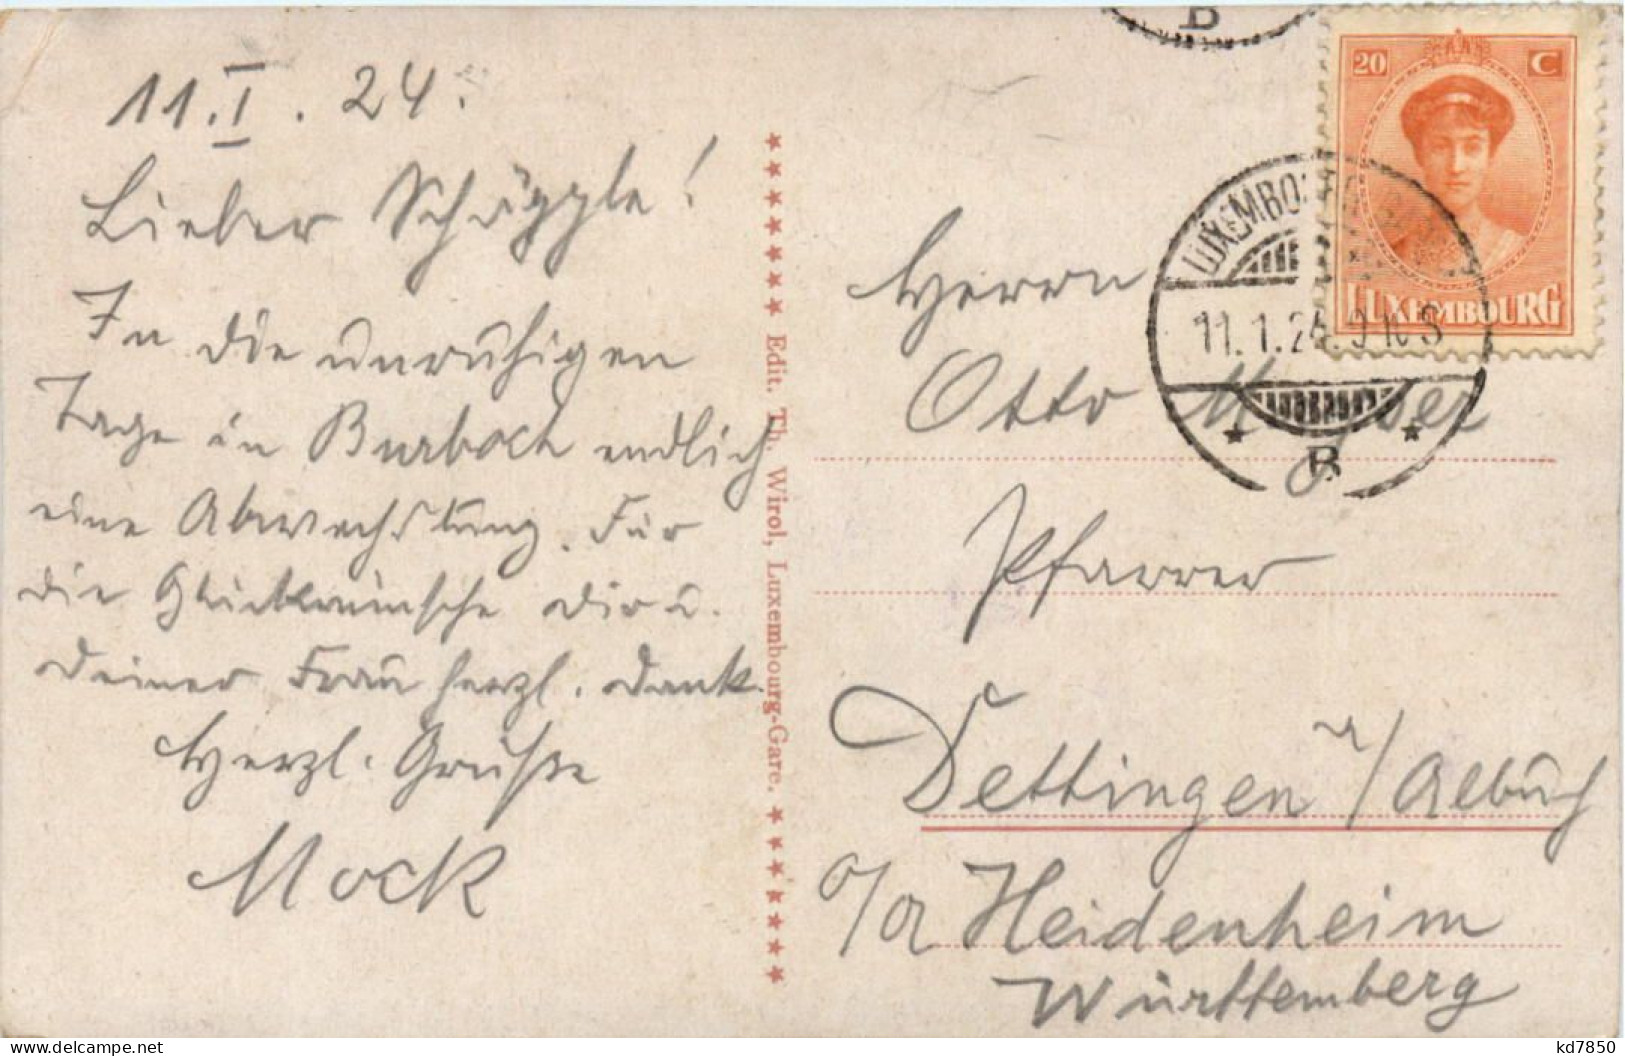 11. I. 24.
Lieber Schäpple!
In die unruhigen
Tage in Burbach endlich
eine Abwechslung. Für
die Glückwünsche Dir u.
Deiner Frau herzl. Dank.
Herzl. Grüße
Mock
★★★★★★★ Edit. Th. Wirol, Luxembourg-Gare. ★★★★★★★
B
20 C
LUXEMBOURG
LUXEMBOURG GARE
11.1.24. 9 S
B
Herrn
Otto
Pfarrer
Dettingen a/Albuch
o/a Heidenheim
Württemberg
kd7850